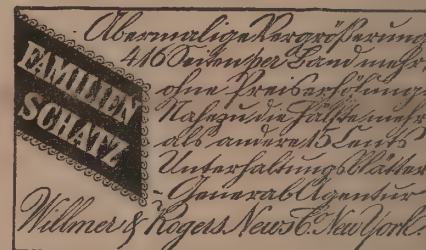 Abermalige Vergrößerung
416 Seiten per Band mehr
ohne Preiserhöhung
Nahezu die Hälfte mehr
als andere 15 Cents
Unterhaltungs Blätter
- General Agentur
Willmer & Rogers News Co. New York.
FAMILIEN
SCHATZ